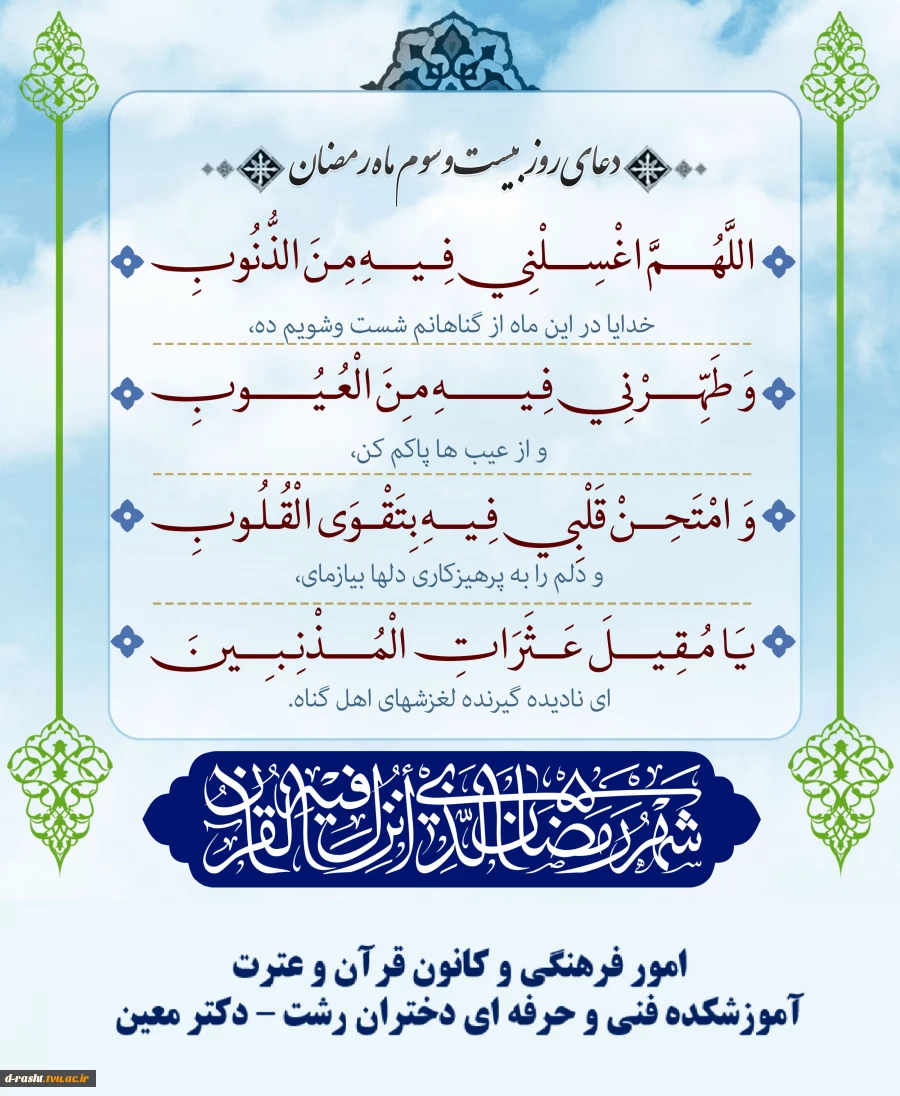 دعای روز بیست و سوم ماه رمضان
اللَّهُمَّ اغْسِلْنِي فِيهِ مِنَ الذُّنُوبِ
خدایا در این ماه از گناهانم شست وشویم ده،
وَ طَهِّرْنِي فِيهِ مِنَ الْعُيُوبِ
و از عیب ها پاکم کن،
وَ امْتَحِنْ قَلْبِي فِيهِ بِتَقْوَى الْقُلُوبِ
و دلم را به پرهیزکاری دلها بیازمای،
يَا مُقِيلَ عَثَرَاتِ الْمُذْنِبِينَ
ای نادیده گیرنده لغزشهای اهل گناه.
شهر رمضان الذي أنزل فيه القرآن
امور فرهنگی و کانون قرآن و عترت
آموزشکده فنی و حرفه ای دختران رشت - دکتر معین
d-rasht.tvu.ac.ir